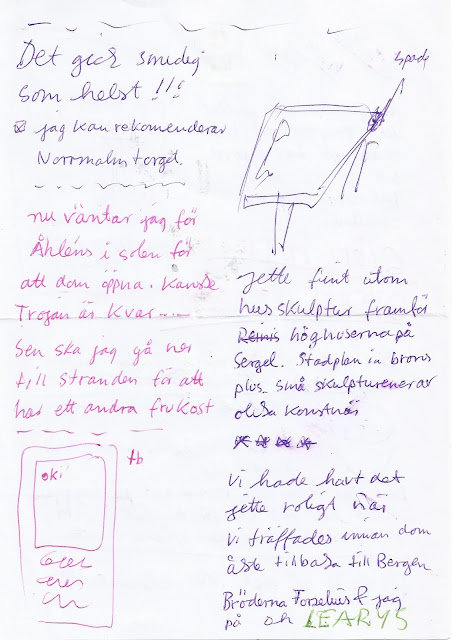 Det gick smidig
som helst !!!
jag kan rekomenderar
Norrmalmstorget.
nu väntar jag för
Åhléns i solen för
att dom öppna. Kanske
Trojan är kvar
Sen ska jag gå ner
till stranden för att
ha ett andra frukost
oki
tb
spade
jette fint utom
hus skulptur framför
höghuserna på
Sergel. Stadplan in brons
plus små skulpturener av
olika konstnär
Vi hade havt det
jette roligt när
vi träffades innan dom
åkte tillbaka till Bergen
Bröderna Forselius & jag
på oh LEARYS